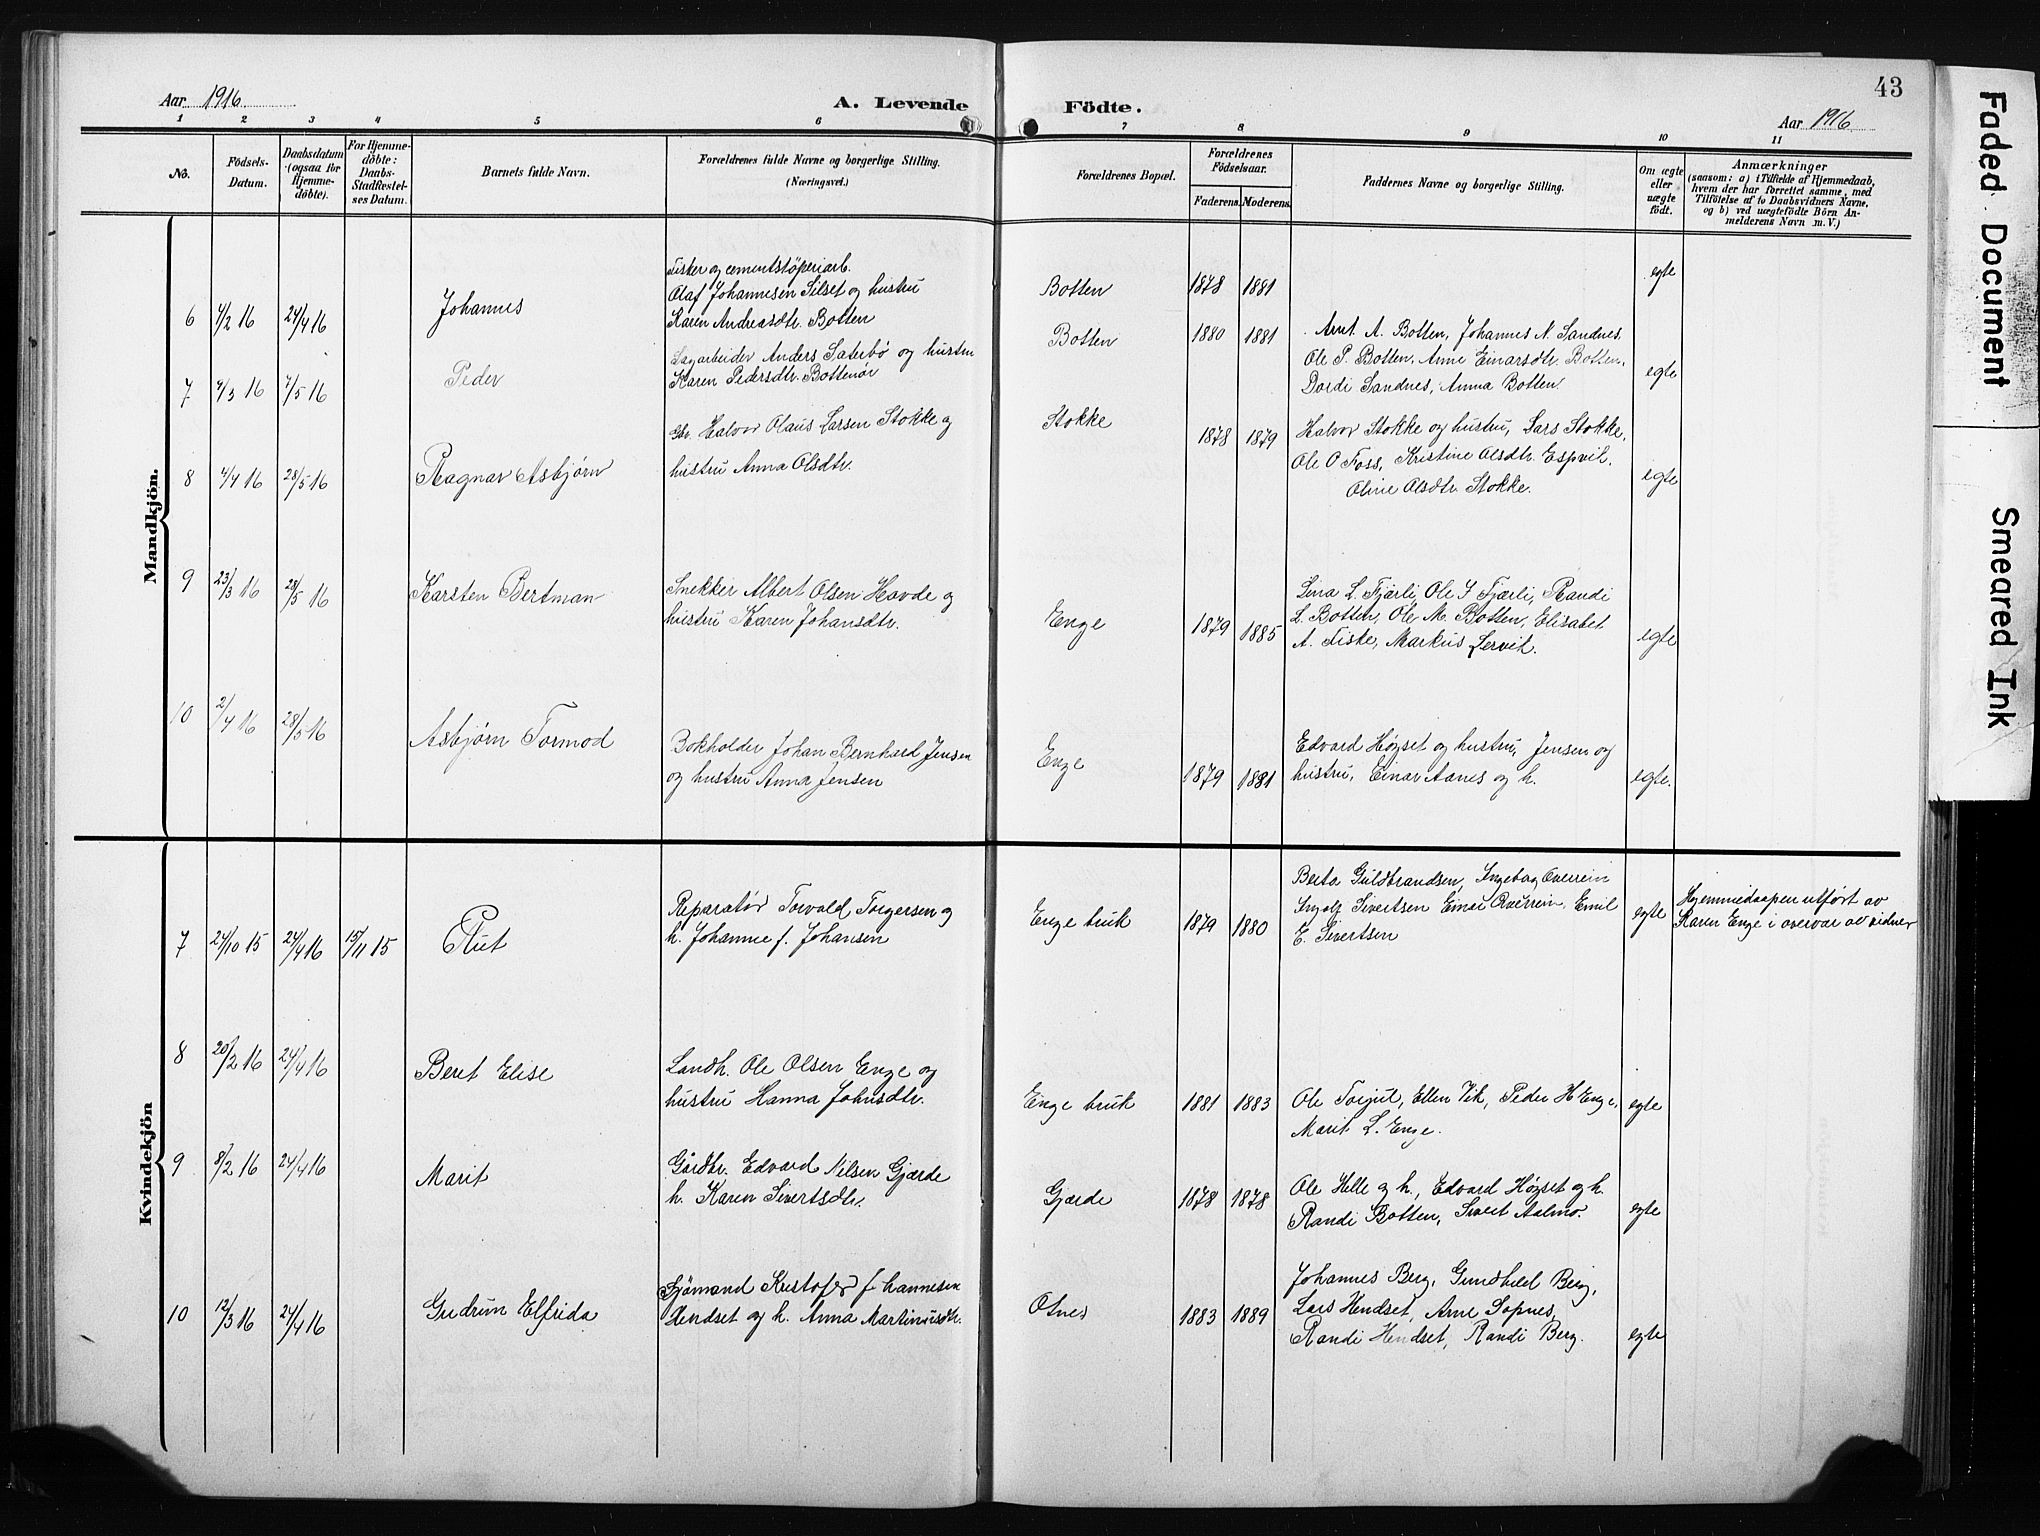 Aar 1916.
A. Levende
Födte.
43
Aar 1916
1 2 3 4 5 6 7 8 9 10 11
No.
Födsels-Datum.
Daabsdatum (ogsaa for Hjemmedöbte).
For Hjemmedöbte: Daabs-Stadfæstelses Datum.
Barnets fulde Navn.
Forældrenes fulde Navne og borgerlige Stilling.
(Næringsvei.)
Forældrenes Bopæl.
Forældrenes Födselsaar.
Faderens. Moderens.
Faddernes Navne og borgerlige Stilling.
Om ægte eller uægte födt.
Anmærkninger
(saasom: a) i Tilfælde af Hjemmedaab,
hvem der har forrettet samme, med
Tilföielse af to Daabsvidners Navne,
og b) ved uægtefödte Börn An-
melderens Navn m. V.)
Mandkjön.
6 4/2 16 24/4 16 Johannes
Fisker og cementstöperiarb.
Olaf Johannesen Silset og hustru
Karen Andreasdtr. Botten
Botten 1878 1881 egte
7 4/3 16 7/5 16 Peder
Sagarbeider Anders Saterbö og hustru
Karen Pedersdtr. Bottenör
Botten 1880 1881
Arnt A. Botten, Johannes N. Sandnes.
Ole P. Botten, Anne Einarsdtr. Botten,
Dordi Sandnes, Anna Botten
egte
8 4/4 16 28/5 16 Ragnar Asbjørn
Gbr. Halvor Olaus Larsen Stokke og
hustru Anna Olsdtr.
Stokke 1878 1879
Halvor Stokke og hustru, Lars Stokke,
Ole O Foss, Kristine Olsdtr. Espvik,
Oline Olsdtr. Stokke.
egte
9 23/3 16 28/5 16 Karsten Bertman
Snekker Albert Olsen Havde og
hustru Karen Johansdtr.
Enge 1879 1885
Lina L. Fjærli, Ole I Fjærli, Randi
L. Botten, Ole M. Botten, Elisabet
A. Fiske, Markus Lervik.
egte
10 2/4 16 28/5 16 Asbjørn Tormod
Bokholder Johan Bernhard Jensen
og hustru Anna Jensen
Enge 1879 1881
Edvard Høgset og hustru, Jensen og
hustru, Einar Aanes og h.
egte.
Kvindekjön
7 24/10 15 24/4 16 15/11 15 Rut
Reparatör Torvald Torgersen og
h. Johanne f. Johansen
Enge bruk 1879 1880
Berta Guldbrandsen, Ingebog Overrein
Ingolf Sivertsen Einar Overrein, Emil
E. Sivertsen
egte
Hjemmedaapen utfört av
Karen Enge i overvær av vidner
8 20/2 16 24/4 16 Beret Elise
Landh. Ole Olsen Enge og
hustru Hanna Johnsdtr.
Enge bruk 1881 1883
Ole Torjul, Ellen Vik, Peder H Enge,
Marit L. Enge.
egte
9 8/2 16 24/4 16 Marit
Gårdbr. Edvard Nilsen Gjærde
h. Karen Sivertsdtr.
Gjærde 1878 1878
Ole Helle og h, Edvard Høgset og h.
Randi Botten, Sivert Aalmo.
egte
10 12/3 16 24/4 16 Gudrun Elfrida
Sjömand Kristofer Johannesen
Hendset og h. Anna Martinusdtr.
Otnes 1883 1889
Johannes Berg, Gundhild Berg,
Lars Hendset, Arne Sopnes,
Randi Hendset, Randi Berg.
egte
Faded Document
Smeared Ink